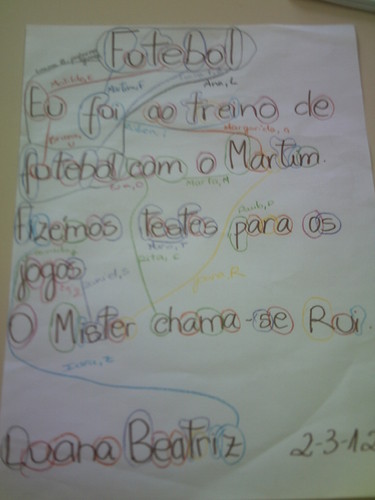 Fotebol
Eu foi ao treino de
fotebol com o Martim.
Fizemos testes para os
jogos
O Mister chama-se Roi.
Luana Beatriz 2-3-12